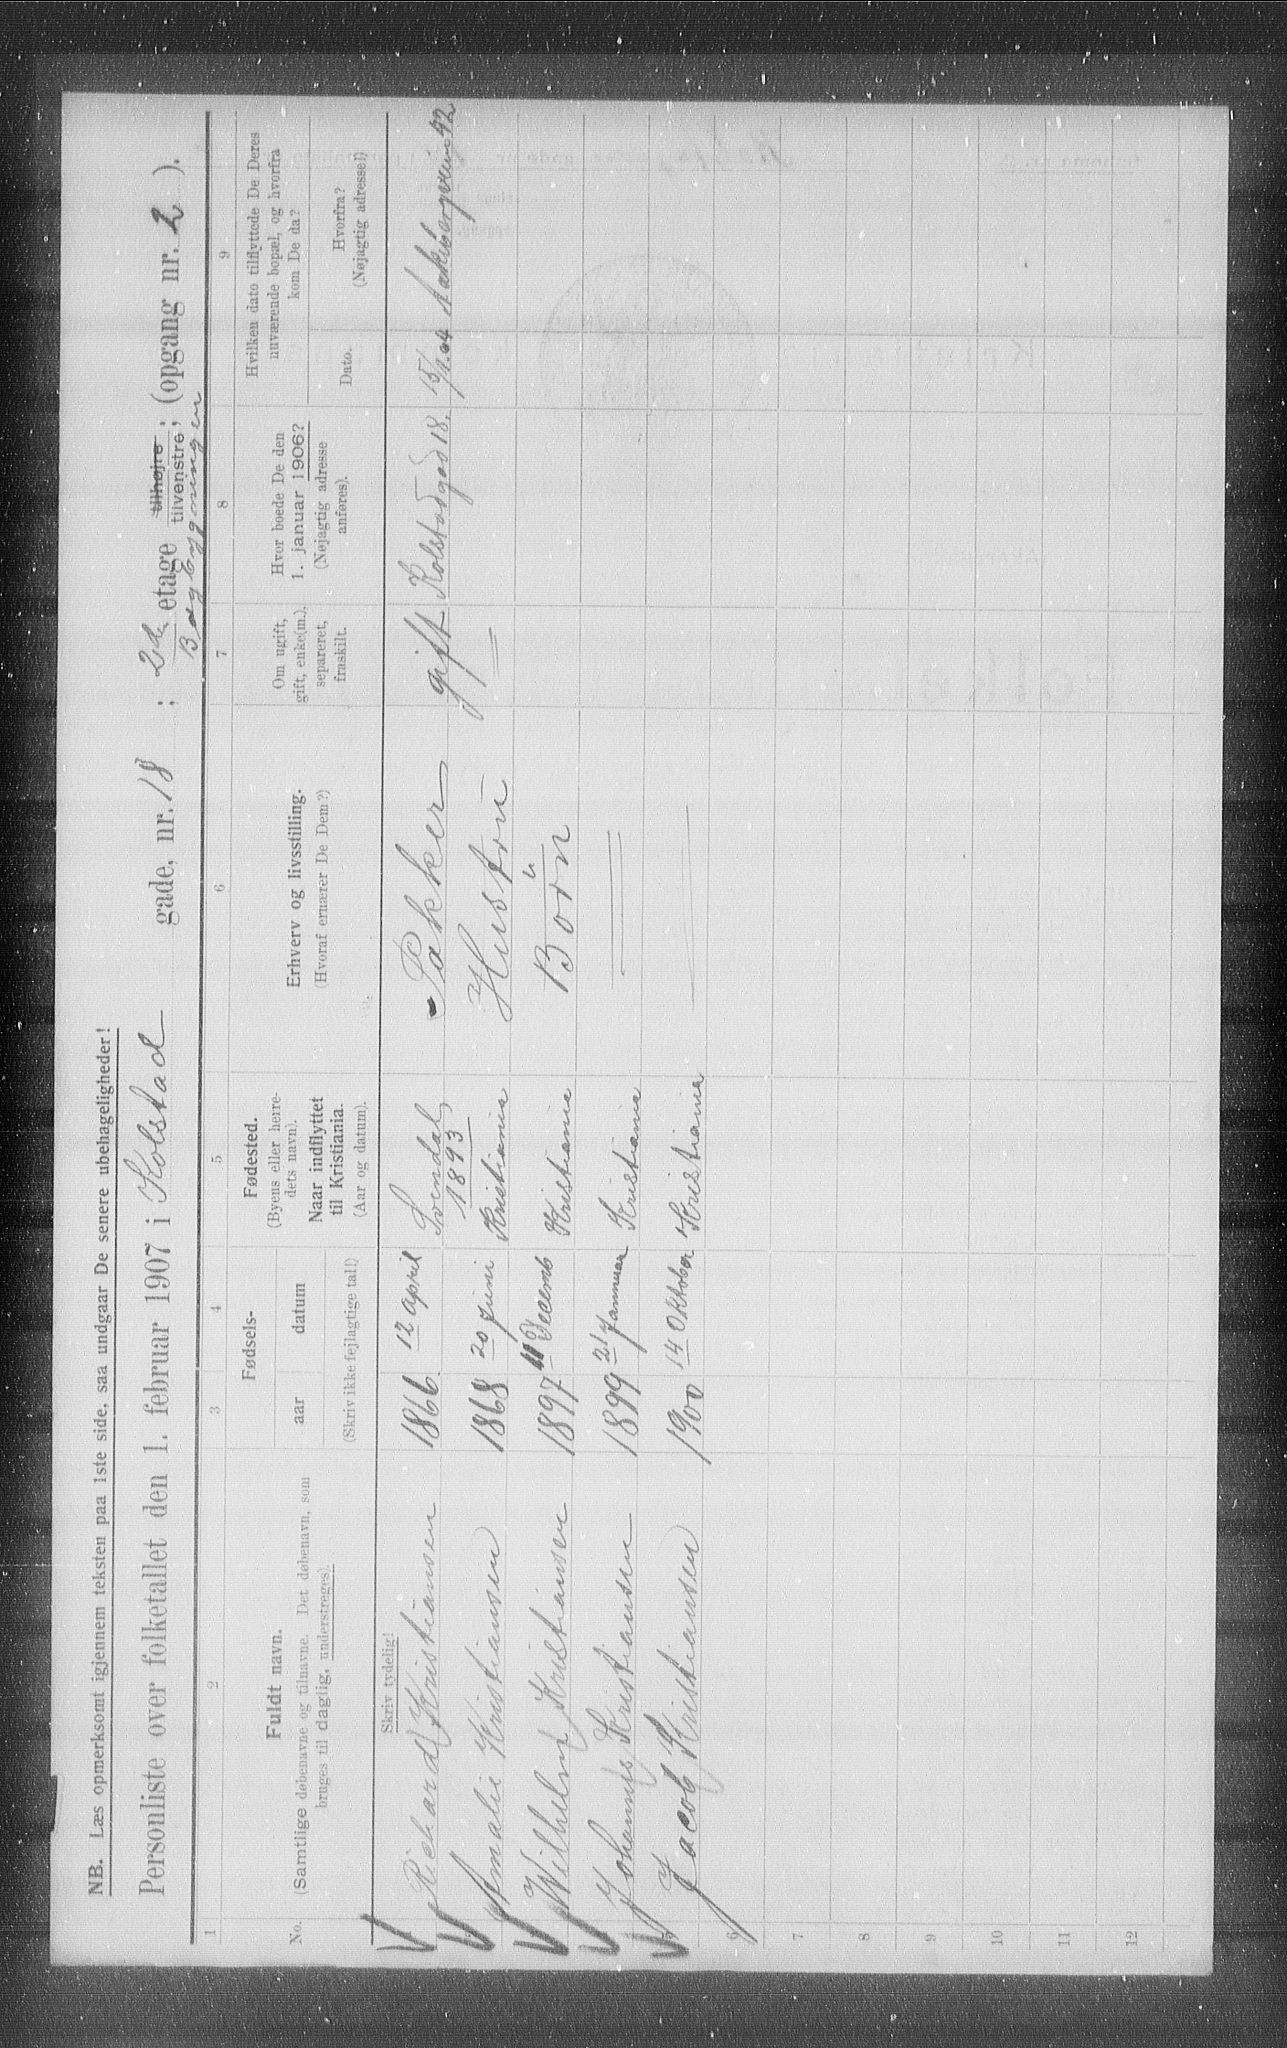 NB. Læs opmerksomt igjennem teksten paa 1ste side, saa undgaar De senere ubehageligheder!
Personliste over folketallet den 1. februar 1907 i Kolstad gade, nr. 18 ; 2den etage tilhøjre tilvenstre; (opgang nr. 2 ).
Bagbygningen
1 2 3 4 5 6 7 8 9
No.
Fuldt navn.
(Samtlige døbenavne og tilnavne. Det døbenavn, som
bruges til daglig, understreges).
Fødsels-
aar datum
(Skriv ikke fejlagtige tal!)
Fødested.
(Byens eller herre-
dets navn).
Naar indflyttet
til Kristiania.
(Aar og datum).
Erhverv og livsstilling.
(Hvoraf ernærer De Dem?)
Om ugift,
gift, enke(m.),
separeret,
fraskilt.
Hvor boede De den
1. januar 1906?
(Nøjagtig adresse
anføres).
Hvilken dato tilflyttede De Deres
nuværende bopæl, og hvorfra
kom De da?
Dato.
Hvorfra?
(Nøjagtig adresse!)
Skriv tydelig!
Richard Kristiansen 1866 12 april 1893 Pakker gift Kolstadgad 18. Aakebergveien 42
Amalie Kristiansen 1868 20 Juni Kristiania Hustru "
Wilhelm Kristiansen 1897 11 Decemb Kristiania Born
Johannes Kristiansen 1899 21 Januar Kristiania
5 Jacob Kristiansen 1900 14 Oktober Kristiania
6
7
8
9
10
11
12